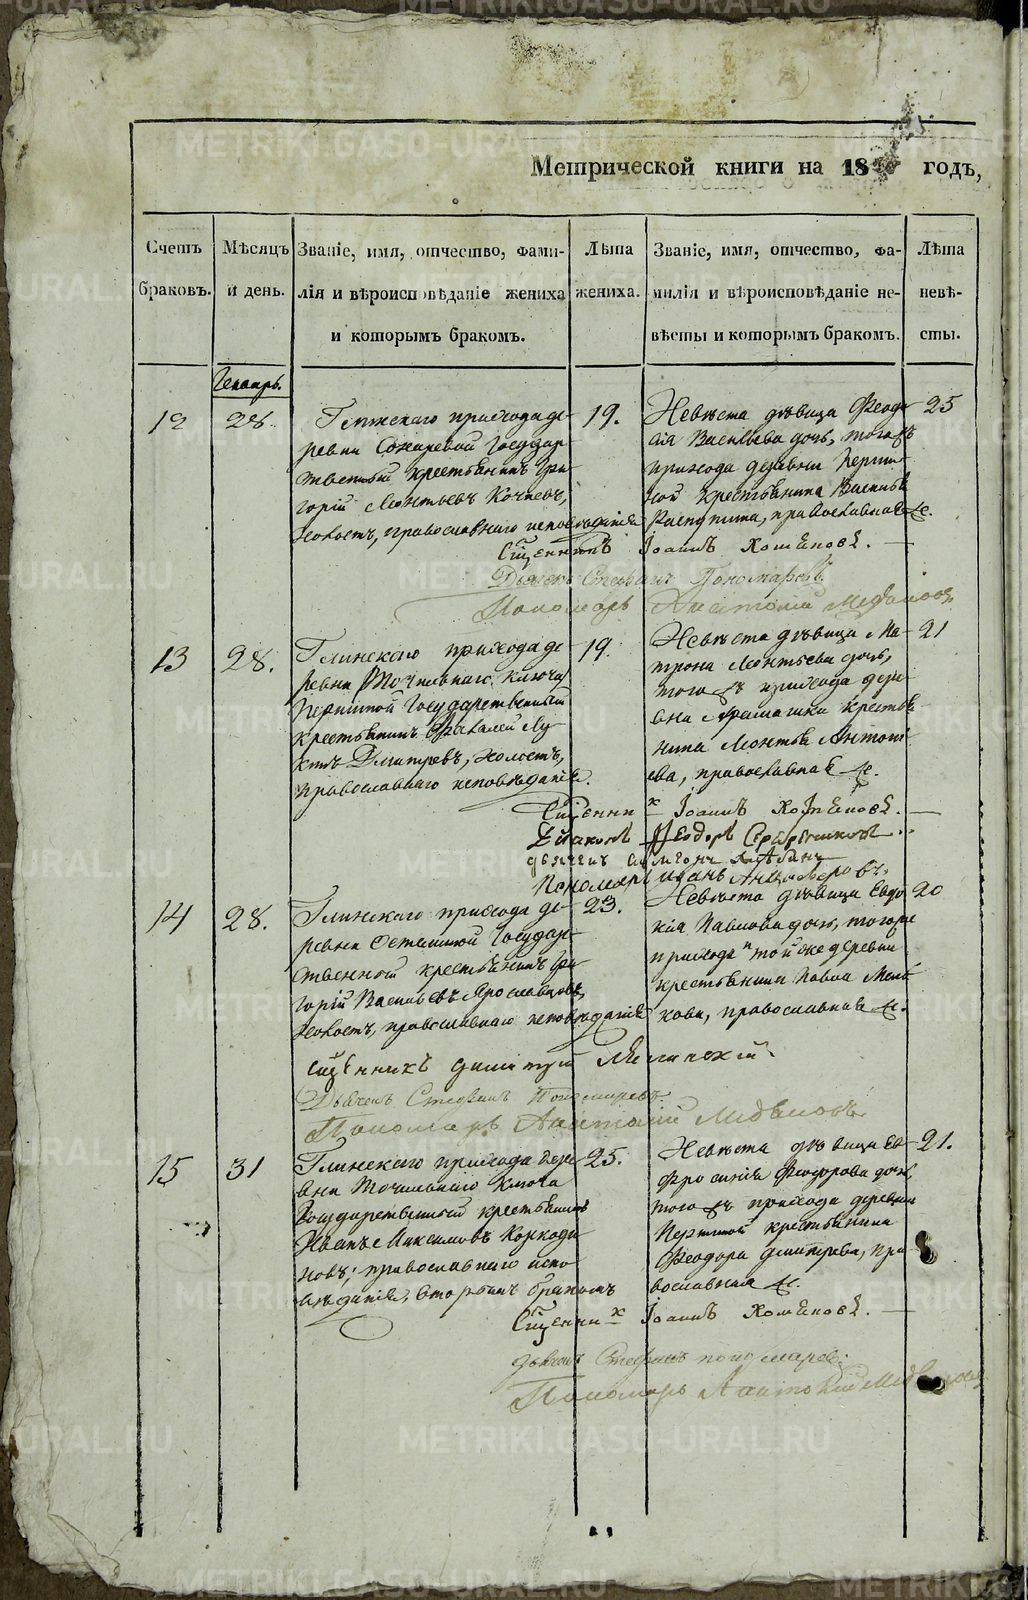 METRIKI.GASO-URAL.RU
Метрической книги на 18 годъ,
Счетъ браковъ.
Мѣсяцъ и день.
Званіе, имя, отчество, фами-
лія и вѣроисповѣданіе жениха
и которымъ бракомъ.
Лѣта
жениха.
Званіе, имя, отчество, фа-
милія и вѣроисповѣданіе не-
вѣсты и которымъ бракомъ.
Лѣта
невѣ-
сты.
Генварь.
12
28.
Глинскаго прихода де-
ревни Сохаревой Государ-
твенный крестьянинъ Гри-
горій Леонтьевъ
холостъ, православнаго исповѣданія
19.
Невѣста дѣвица Феодо-
сія Васильева дочь, тогожъ
прихода деревни Першин-
ной крестьянина Василья
Распутина, православная
25
Сщенникъ Іоаннъ Хомяковъ.
Дьячекъ Стефанъ Пономаревъ
Пономарь Анатолій Медвѣдевъ
13
28.
Глинскаго прихода де-
ревни Точильнаго ключа
Першиной Государственный
крестьянинъ
Дмитревъ, холостъ,
православнаго исповѣданія.
19.
Невѣста дѣвица Ма-
трона Леонтьева дочь,
тогожъ прихода дере-
вни крестья-
нина Леонтья Антонь-
ева, православная
21
Сщенникъ Іоаннъ Хомяковъ.
Дїаконъ Феодоръ Серебренниковъ
дьячекъ
Пономарь Иванъ
14
28.
Глинскаго прихода де-
ревни Осташной Государ-
ственной крестьянинъ Гри-
горій Васильевъ Ярославцовъ,
холостъ, православнаго исповѣданія
23.
Невѣста дѣвица Евдо-
кія Павлова дочь, тогоже
прихода и той же деревни
крестьянина Павла Мель-
кова, православная
20
сщенникъ Димитрій
Дьячекъ Стефанъ Пономаревъ
Пономарь Анатолій Медвѣдевъ
15
31
Глинскаго прихода дере-
вни Точильнаго Ключа
Государственный крестьянинъ
Иванъ Максимовъ Коркоди-
новъ, православнаго испо-
вѣданія, вторымъ бракомъ
25.
Невѣста дѣвица Ев-
фросинія Феодорова дочь,
тогожъ прихода деревни
Першиной крестьянина
Феодора Дмитрева, пра-
вославная
21.
Сщенникъ Іоаннъ Хомяковъ.
дьячекъ Стефанъ пономаревъ
Пономарь Анатолій Медвѣдевъ